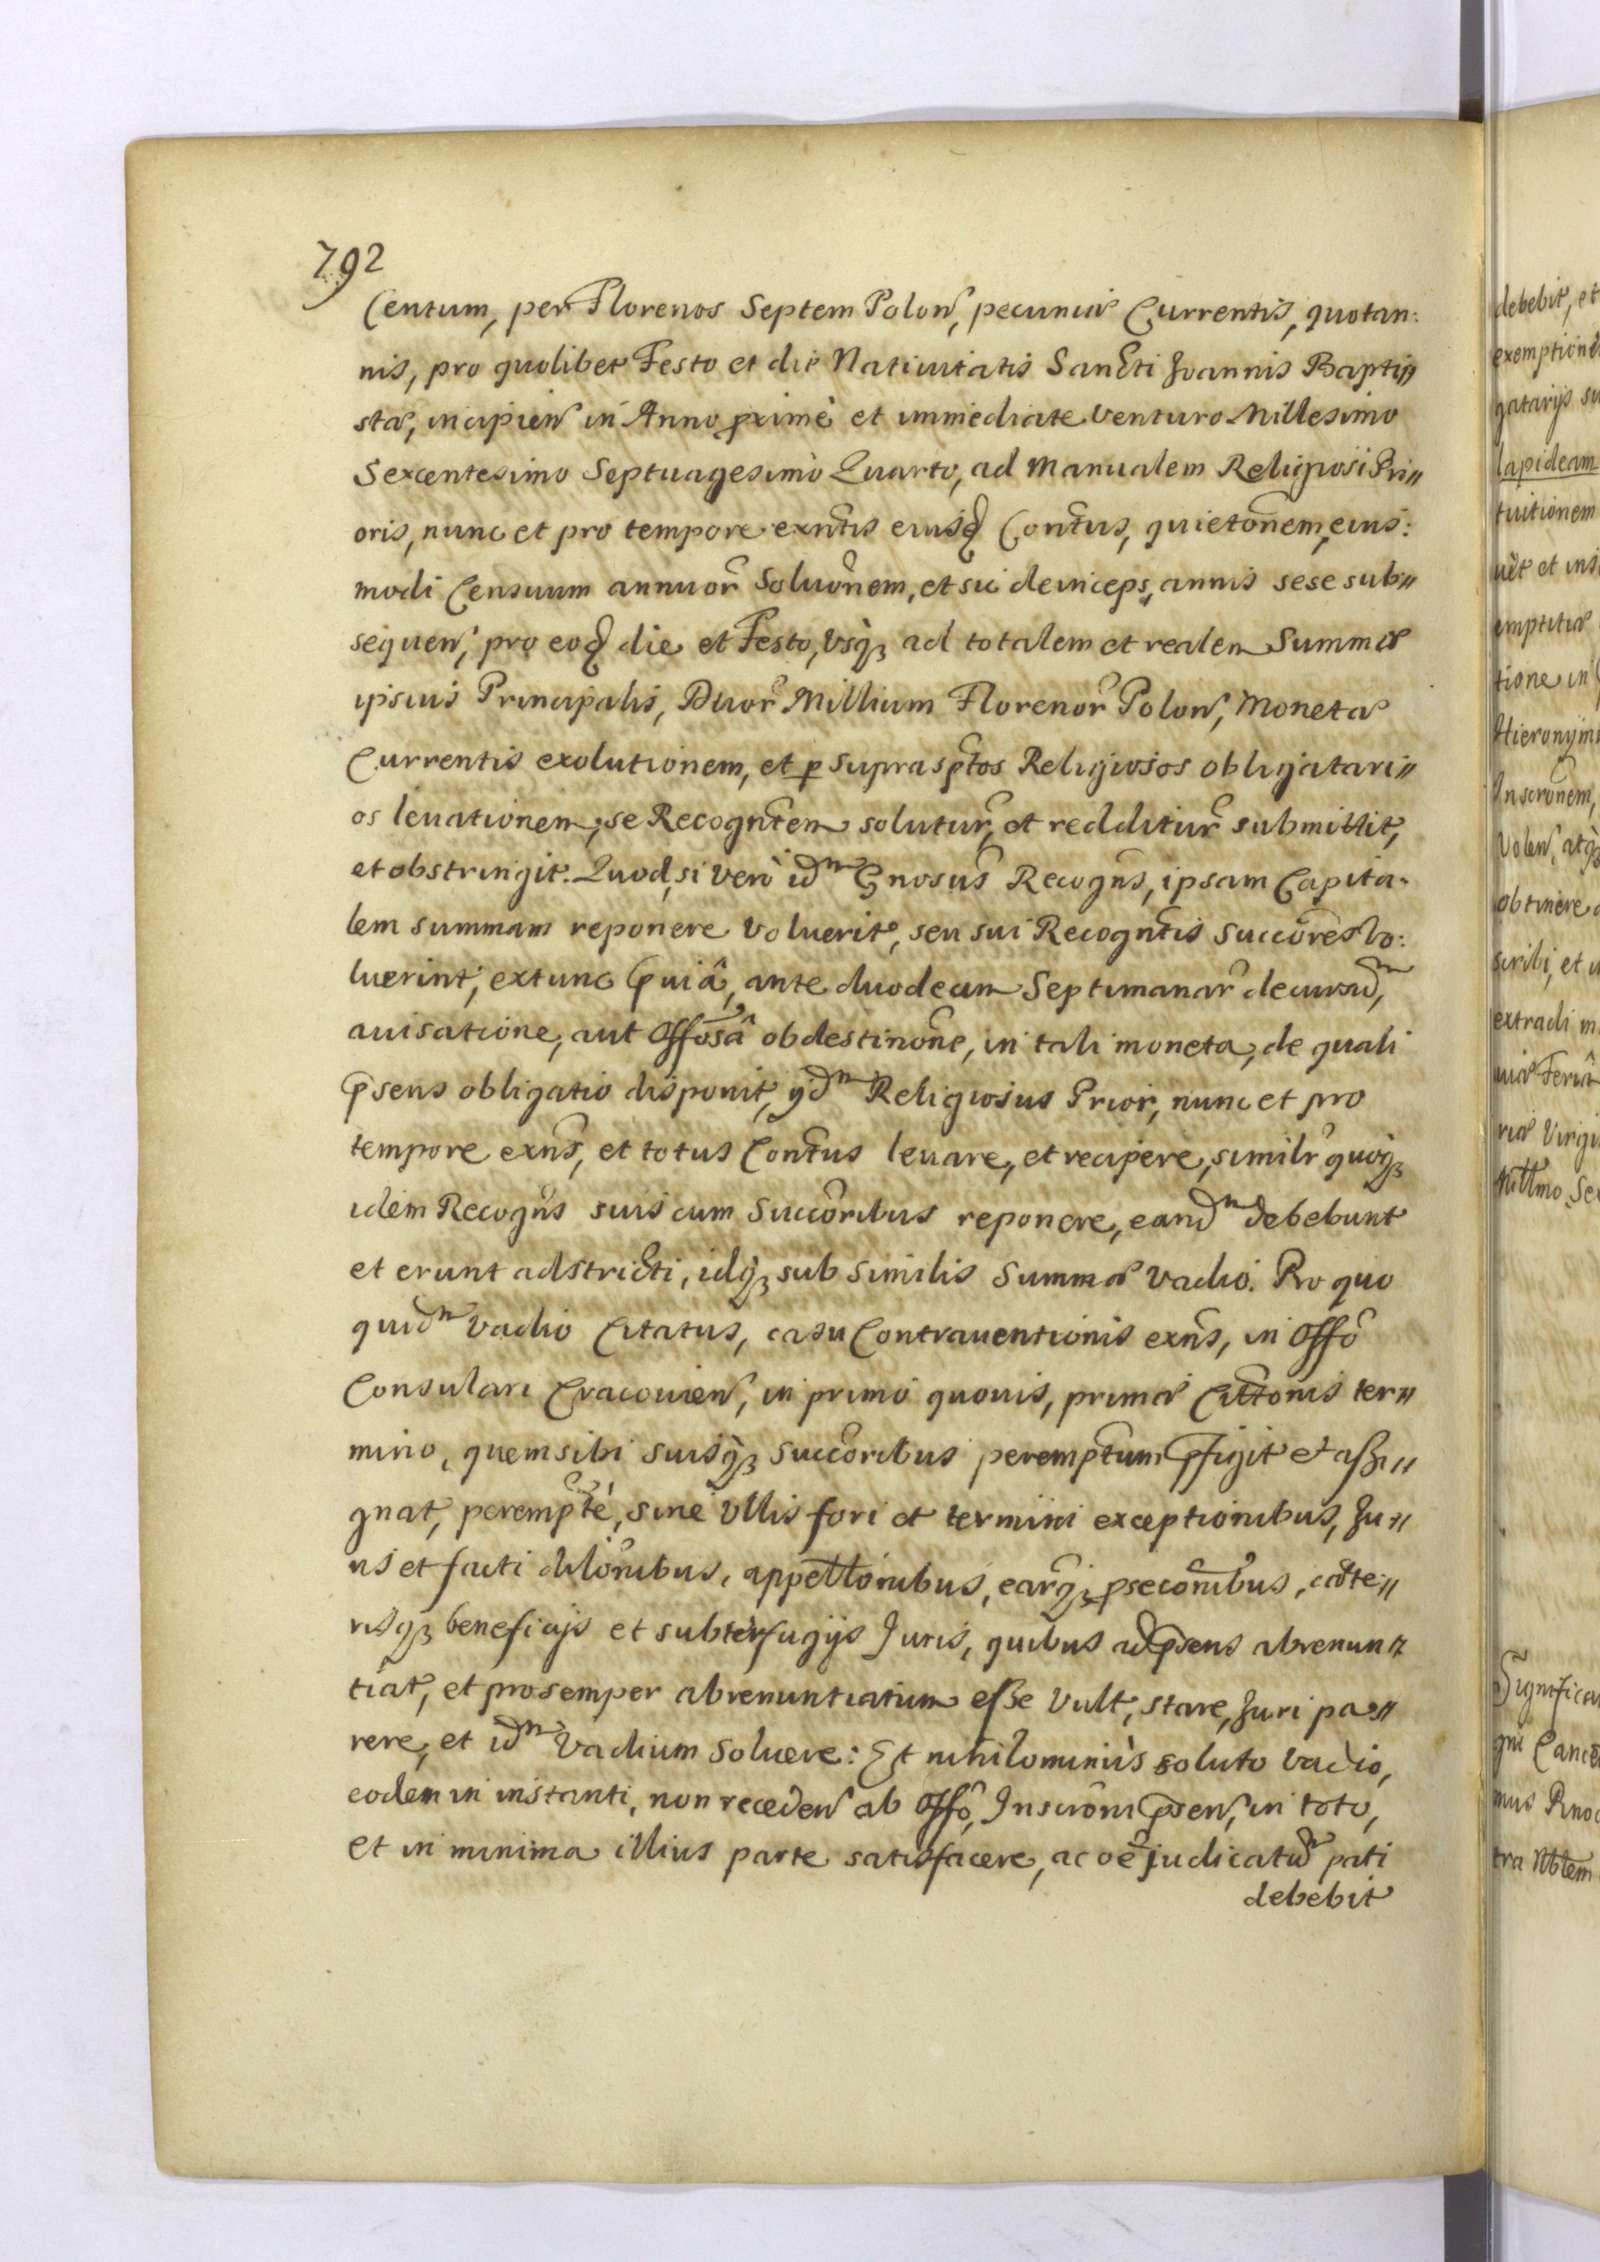 792
Centum, per Florenos Septem Polon, pecuniæ Currentis, quotan:
nis, pro quolibet Festo et die Natiuitatis Sancti Joannis Bapti//
stæ, incipien in Anno proxime et immediate venturo Millesimo
Sexcentesimo Septuagesimo Quarto, ad Manualem Religiosi Pri//
oris, nunc et pro tempore exntis eiusq Contus, quietonem, eius:
modi Censuum annuor Soluonem, et sic deinceps, annis sese sub//
sequen, pro eoq die et Festo, vsq ad totalem et realem Summæ
ipsius Principalis, Duor Millium Florenor Polon, Monetæ
Currentis exolutionem, et p suprascptos Religiosos obligatari//
os leuationem, se Recogntem solutur, et redditur submittit,
et obstringit. Quod, si verò idm Gnosus Recogns, ipsam Capita-
lem summam reponere voluerit, seu sui Recogntis Succores vo:
luerint, extunc pviâ, ante duodecim Septimanar decursum,
auisatione, aut Offosâ obdestinone, in tali moneta, de quali
psens obligatio disponit, ydm Religiosus Prior, nunc et pro
tempore exns, et totus Contus leuare, et recipere, similr quoq
idem Recogns suis cum Succoribus reponere, eandm debebunt
et erunt adstricti, idq sub similis Summæ vadio. Pro quo
quidm vadio Citatus, casu Contrauentionis exns, in Offo
Consulari Cracouien, in primo quouis, primæ Cittonis ter//
mino, quem sibi suisq succoribus peremptum pfigit et assi//
gnat, perempte, sine vllis fori et termini exceptionibus, Ju//
ris et facti dilonibus, appellonibus, earq pseconibus, cæte//
risq beneficijs et subterfugijs Juris, quibus ad psens abrenun//
tiat, et pro semper abrenuntiatum esse vult, stare, Juri pa//
rere, et idm Vadium Soluere: Et nihilominùs soluto vadio,
eodem in instanti, non receden ab Offo, Inscroni psen, in toto,
et in minima illius parte satisfacere, ac oe judicatum pati
debebit
debebit, et
exemption
gatarijs su
lapideam
tuitionem
uèt et ins
emptitiæ
tione in
Hieronymi
Inscronem,
Volen, atq
obtinere
scribi, et
extradi
riæ Virgi
Millmo Se
Significa
gni Cance
mus Rno
tra Nblem